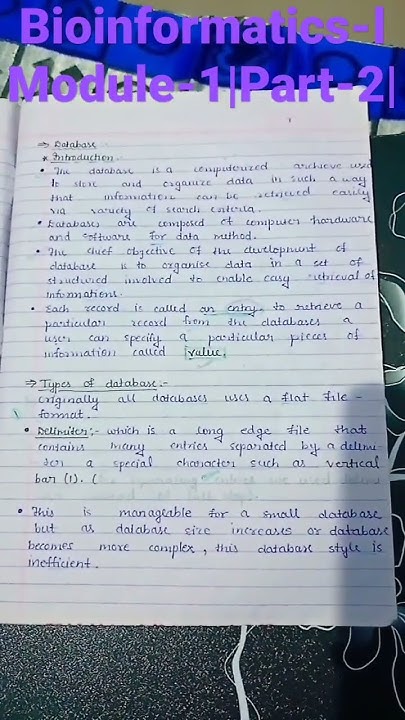 Bioinformatics-I
Module-1|Part-2|
⇒ Database
* Introduction :-
• The database is a computerized archieve used
to store and organize data in such a way
that information can be retrieved easily
via variety of search criteria.
• Databases are composed of computer hardware
and software for data method.
• The chief objective of the development of
database is to organise data in a set of
structured involved to enable easy retrieval of
Informations.
• Each record is called an entry, to retrieve a
particular record from the databases a
user can specify a particular pieces of
information called value.
⇒ Types of database:-
originally all databases uses a flat file -
format.
• Delimiter:- which is a long edge file that
contains many entries separated by a delimi-
ter a special character such as vertical
bar (1). (
• This is manageable for a small database
but as database size increases or database
becomes more complex, this database style is
inefficient.